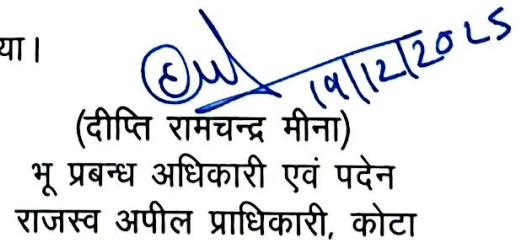 या।
19/12/2025
(दीप्ति रामचन्द्र मीना)
भू प्रबन्ध अधिकारी एवं पदेन
राजस्व अपील प्राधिकारी, कोटा